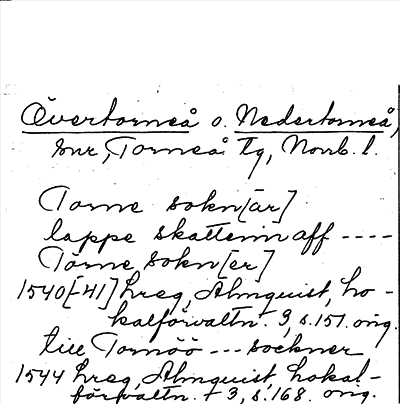 Övertorneå o. Nedertorneå,
snr, Torneå tg, Norrb. l.
Torne sokn[ar]
lappe skattenn aff ----
Törne sokn[er]
1540[-41] hreg, Almquist, lo-
kalförvaltn. 3, s. 151. orig.
till Tornöö --- sockner
1544 hreg, Almquist, lokal-
förvaltn. + 3, s. 168. orig.